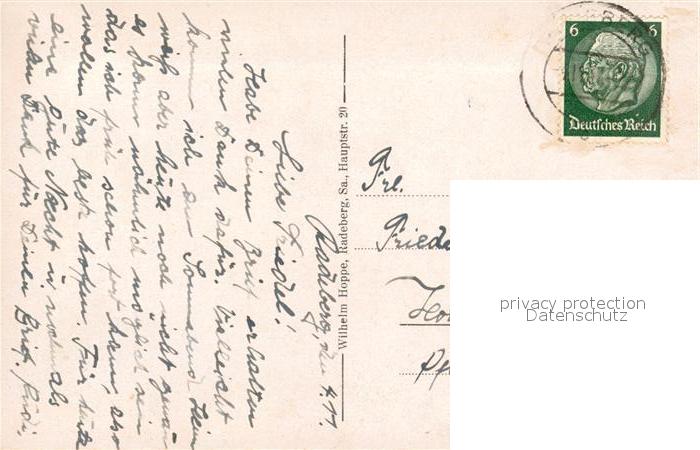 Radeberg, den 4.11.
Liebe Friedel!
Habe Deinen Brief erhalten
vielen Dank dafür. Vielleicht
komme ich den Sonnabend heim
weiß aber heute noch nicht genau
es kann nähmlich möglich sein
das ich früh schon fort kann, also
wollen das beste hoffen. Für heute
eine gute Nacht u. nochmals
vielen Dank für Deinen Brief.
Wilhelm Hoppe, Radeberg, Sa., Hauptstr. 20
6 6
Deutsches Reich
Frl.
Friede
privacy protection
Datenschutz